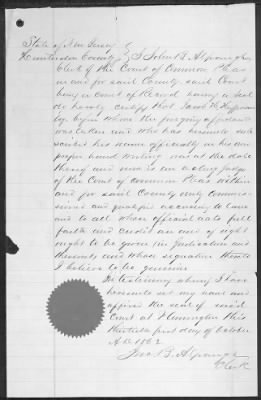 State of New Jersey }
Hunterdon County } I John B. Alpaugh
Clerk of the Court of Common Pleas
in and for said County, said Court
being a court of Record having a seal
do hereby certify that Jacob H. Huffman
by before whom the foregoing affidavit
was taken and who has hereunto sub
scribed his name officially in his own
proper hand writing was at the date
thereof and now is an acting Judge
of the Court of Common Pleas within
and for said County duly commis
sioned and qualified according to Law
and to all whose official acts full
faith and credit are and of right
ought to be given in Judicature and
thereout and whose signature thereto
I believe to be genuine
In testimony whereof I have
hereunto set my name and
affixed the seal of said
Court at Flemington this
thirtieth first day of October
A.D. 1862
Jno. B. Alpaugh
Clerk